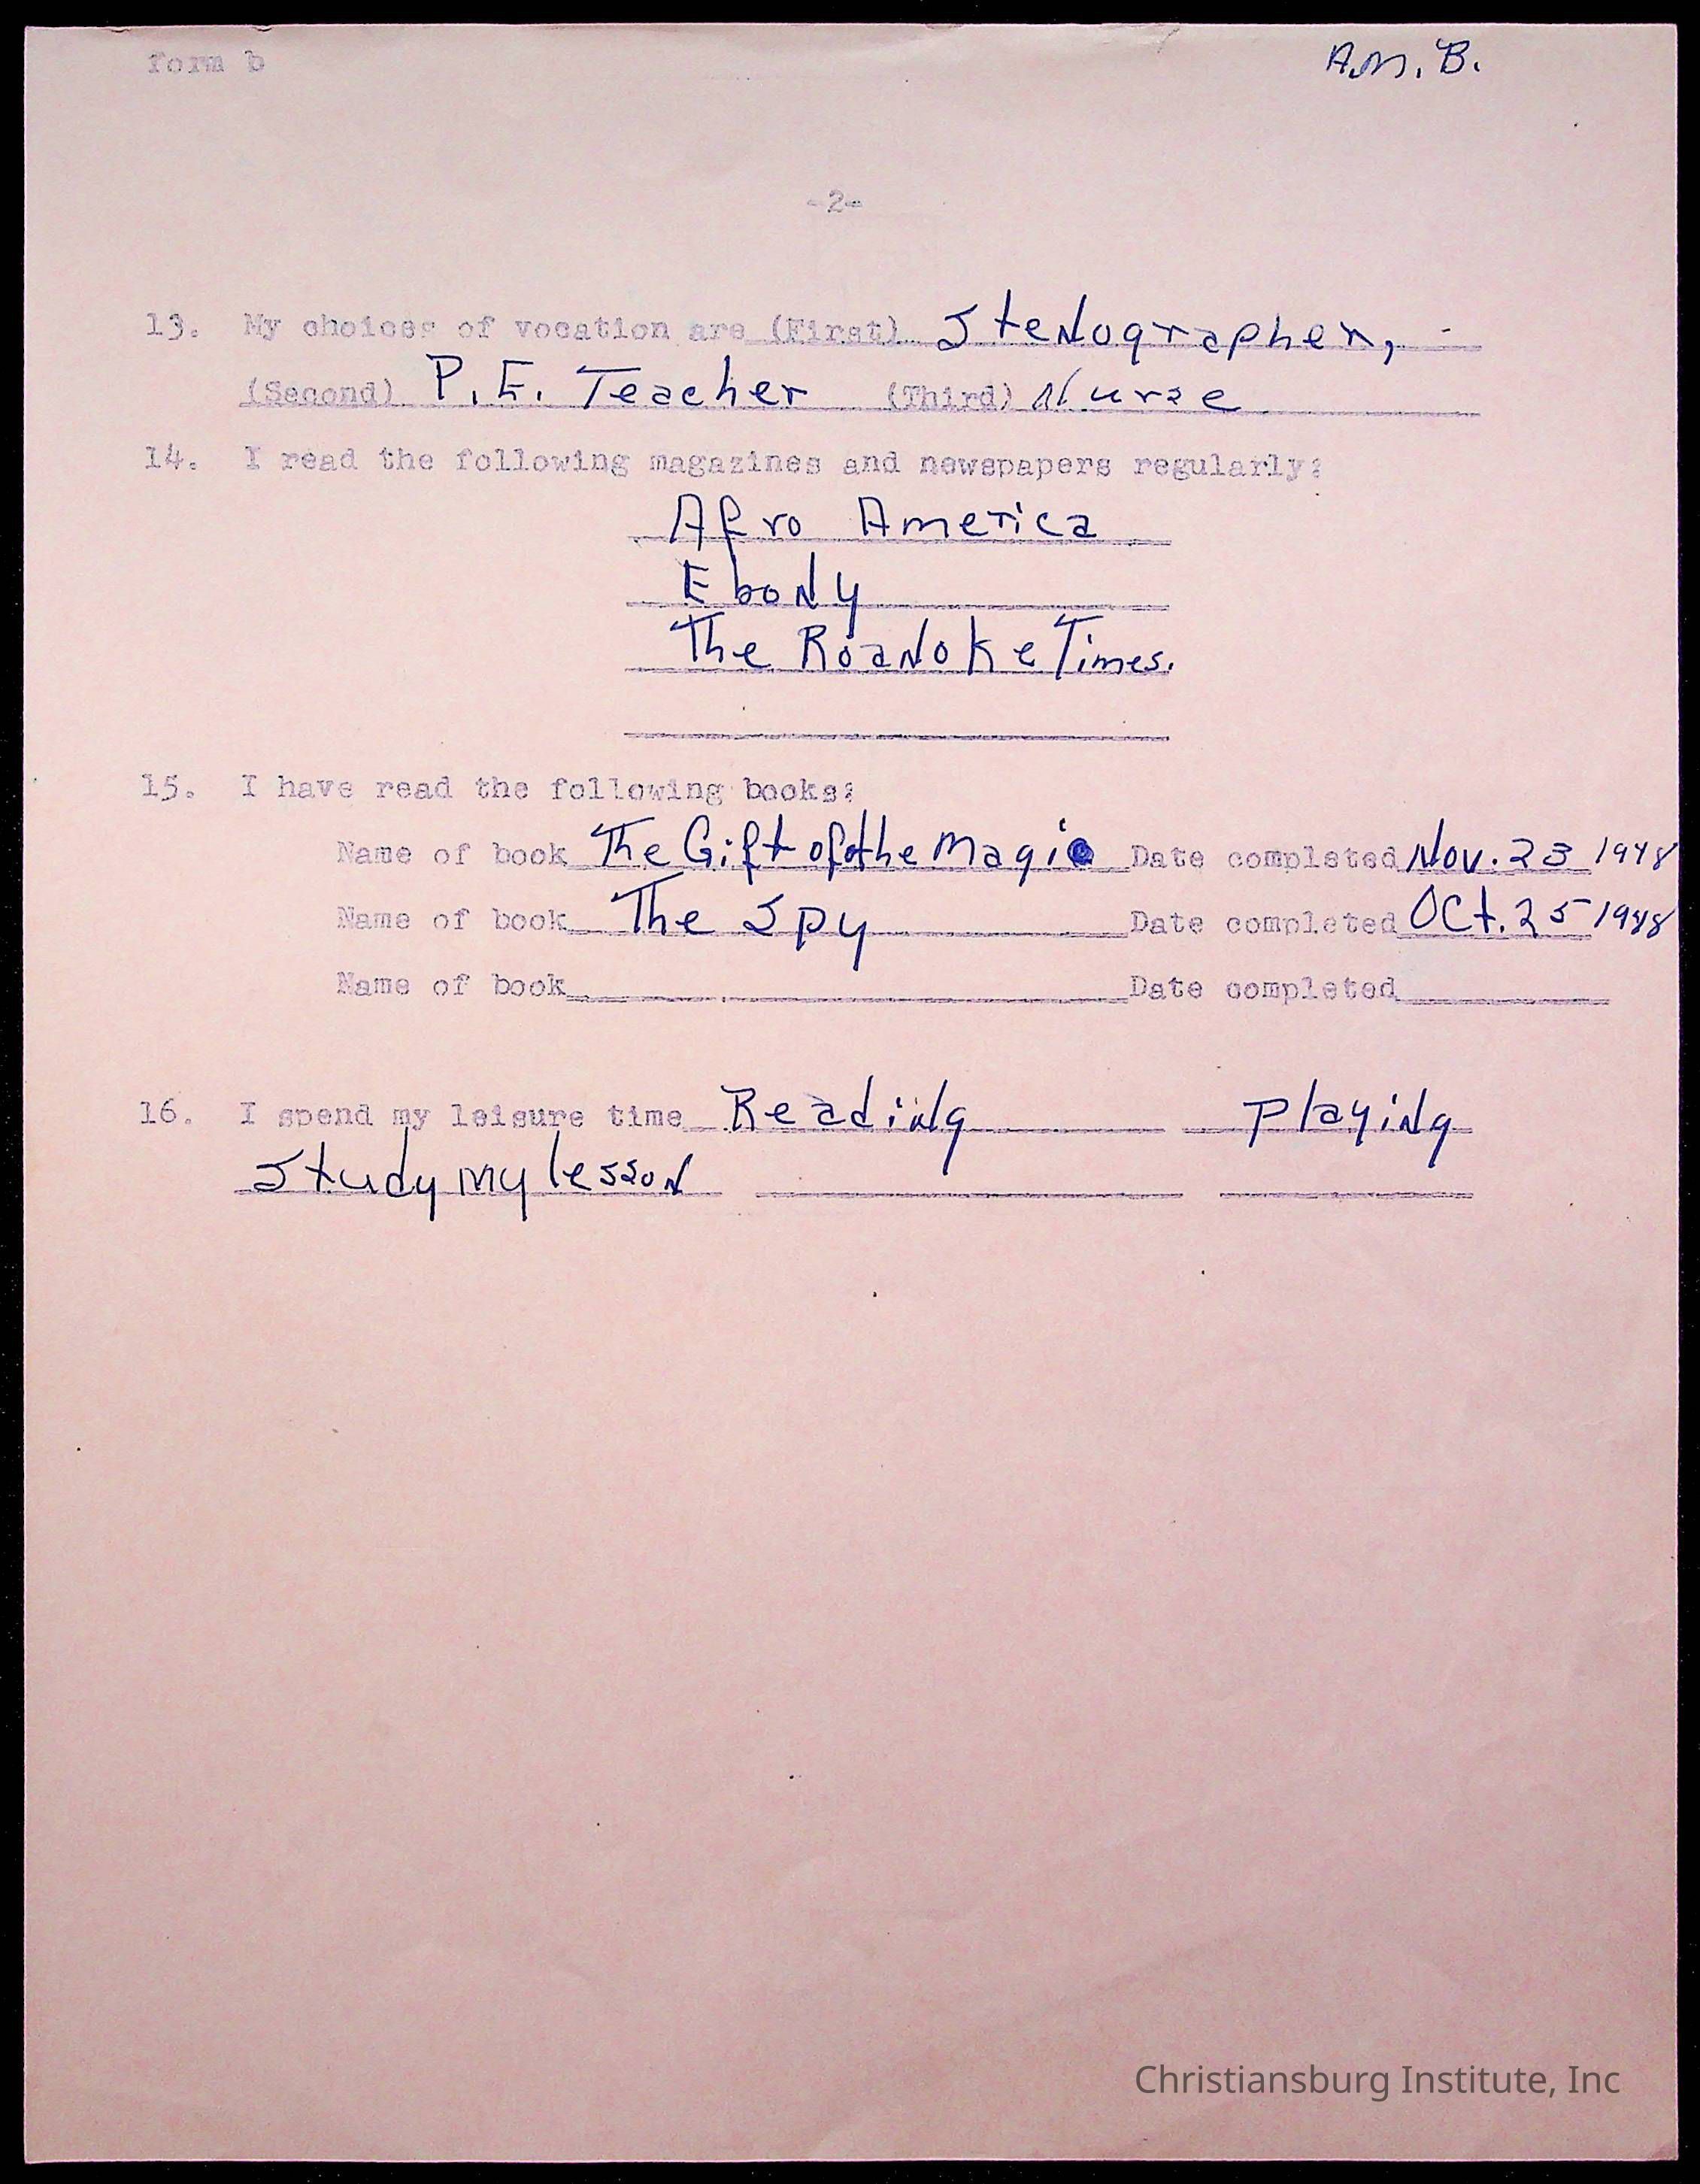 form b A.M. B.
-2-
13. My choices of vocation are (First) Stenographer,
(Second) P. E. Teacher (Third) Nurse
14. I read the following magazines and newspapers regularly:
Afro America
Ebony
The Roanoke Times.
15. I have read the following books:
Name of book The Gift of the Magi Date completed Nov. 23 1948
Name of book The Spy Date completed Oct. 25 1948
Name of book Date completed
16. I spend my leisure time Reading playing
Study my lesson
Christiansburg Institute, Inc